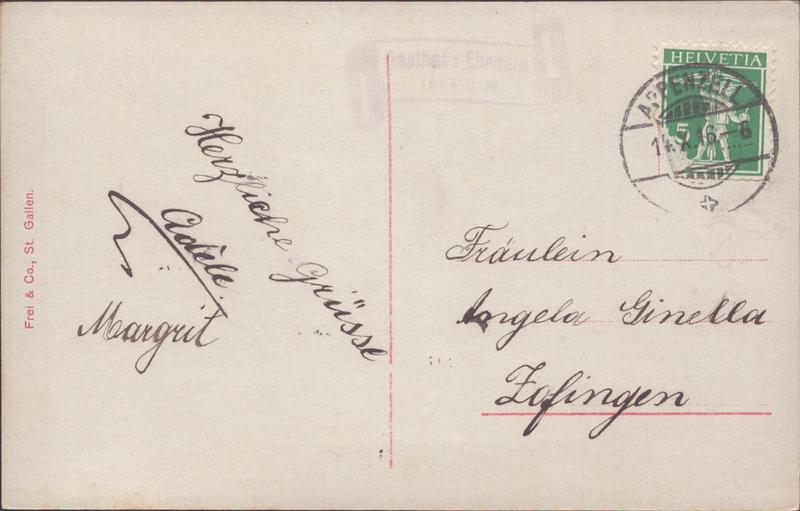 Gasthaus Ebenalp
1640 ü. M.
HELVETIA
5
APPENZELL
14.X.16.-6
Herzliche Grüsse
Adèle.
Margrit
Fräulein
Angela Ginella
Zofingen
Frei & Co., St. Gallen.